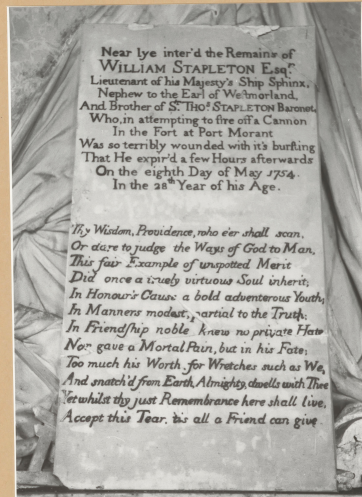 Near lye inter'd the Remains of
WILLIAM STAPLETON Esqr.
Lieutenant of his Majesty's Ship Sphinx,
Nephew to the Earl of Westmorland,
And Brother of Sr. THOs. STAPLETON Baronet,
Who, in attempting to fire off a Cannon
In the Fort at Port Morant
Was so terribly wounded with it's bursting
That He expir'd a few Hours afterwards
On the eighth Day of May 1754.
In the 28th Year of his Age.
Thy Wisdom, Providence, who e'er shall scan,
Or dare to judge the Ways of God to Man,
This fair Example of unspotted Merit
Did once a truely virtuous Soul inherit;
In Honour's Cause a bold adventerous Youth;
In Manners modest, partial to the Truth;
In Friendship noble knew no private Hate
Nor gave a Mortal Pain, but in his Fate;
Too much his Worth for Wretches such as We,
And snatch'd from Earth, Almighty, dwells with Thee
Yet whilst thy just Remembrance here shall live,
Accept this Tear, 'tis all a Friend can give.